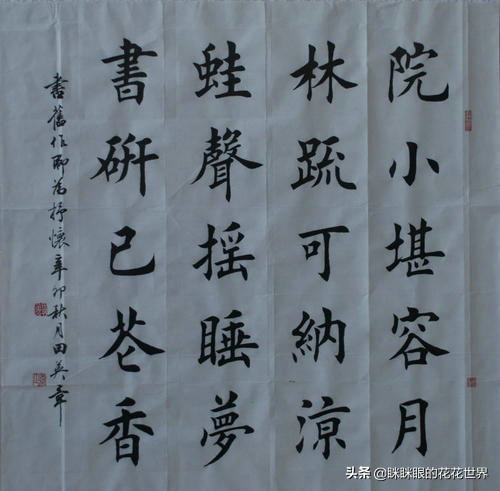 院小堪容月
林疏可納涼
蛙聲摇睡夢
書研已花香
書舊作聊为抒懷辛卯秋月田英章
头条 @眯眯眼的花花世界